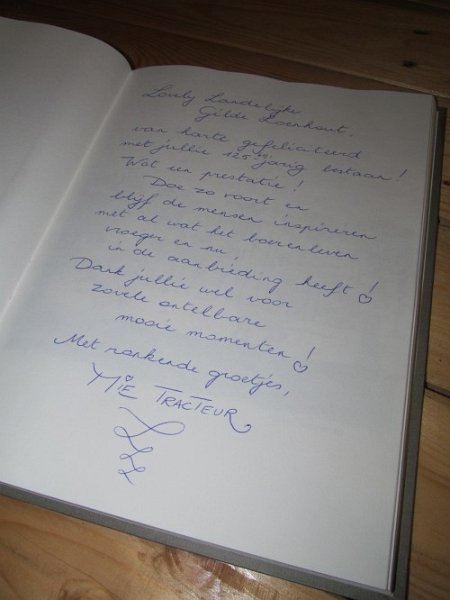 Lovely Landelijke
Gilde Loenhout,
van harte gefeliciteerd
met jullie 125 jarig bestaan!
Wat een prestatie!
Doe zo voort en
blijf de mensen inspireren
met al wat het boerenleven
vroeger en nu,
in de aanbieding heeft! ♡
Dank jullie wel voor
zovele ontelbare
mooie momenten! ♡
Met ronkende groetjes,
MIE TRACTEUR